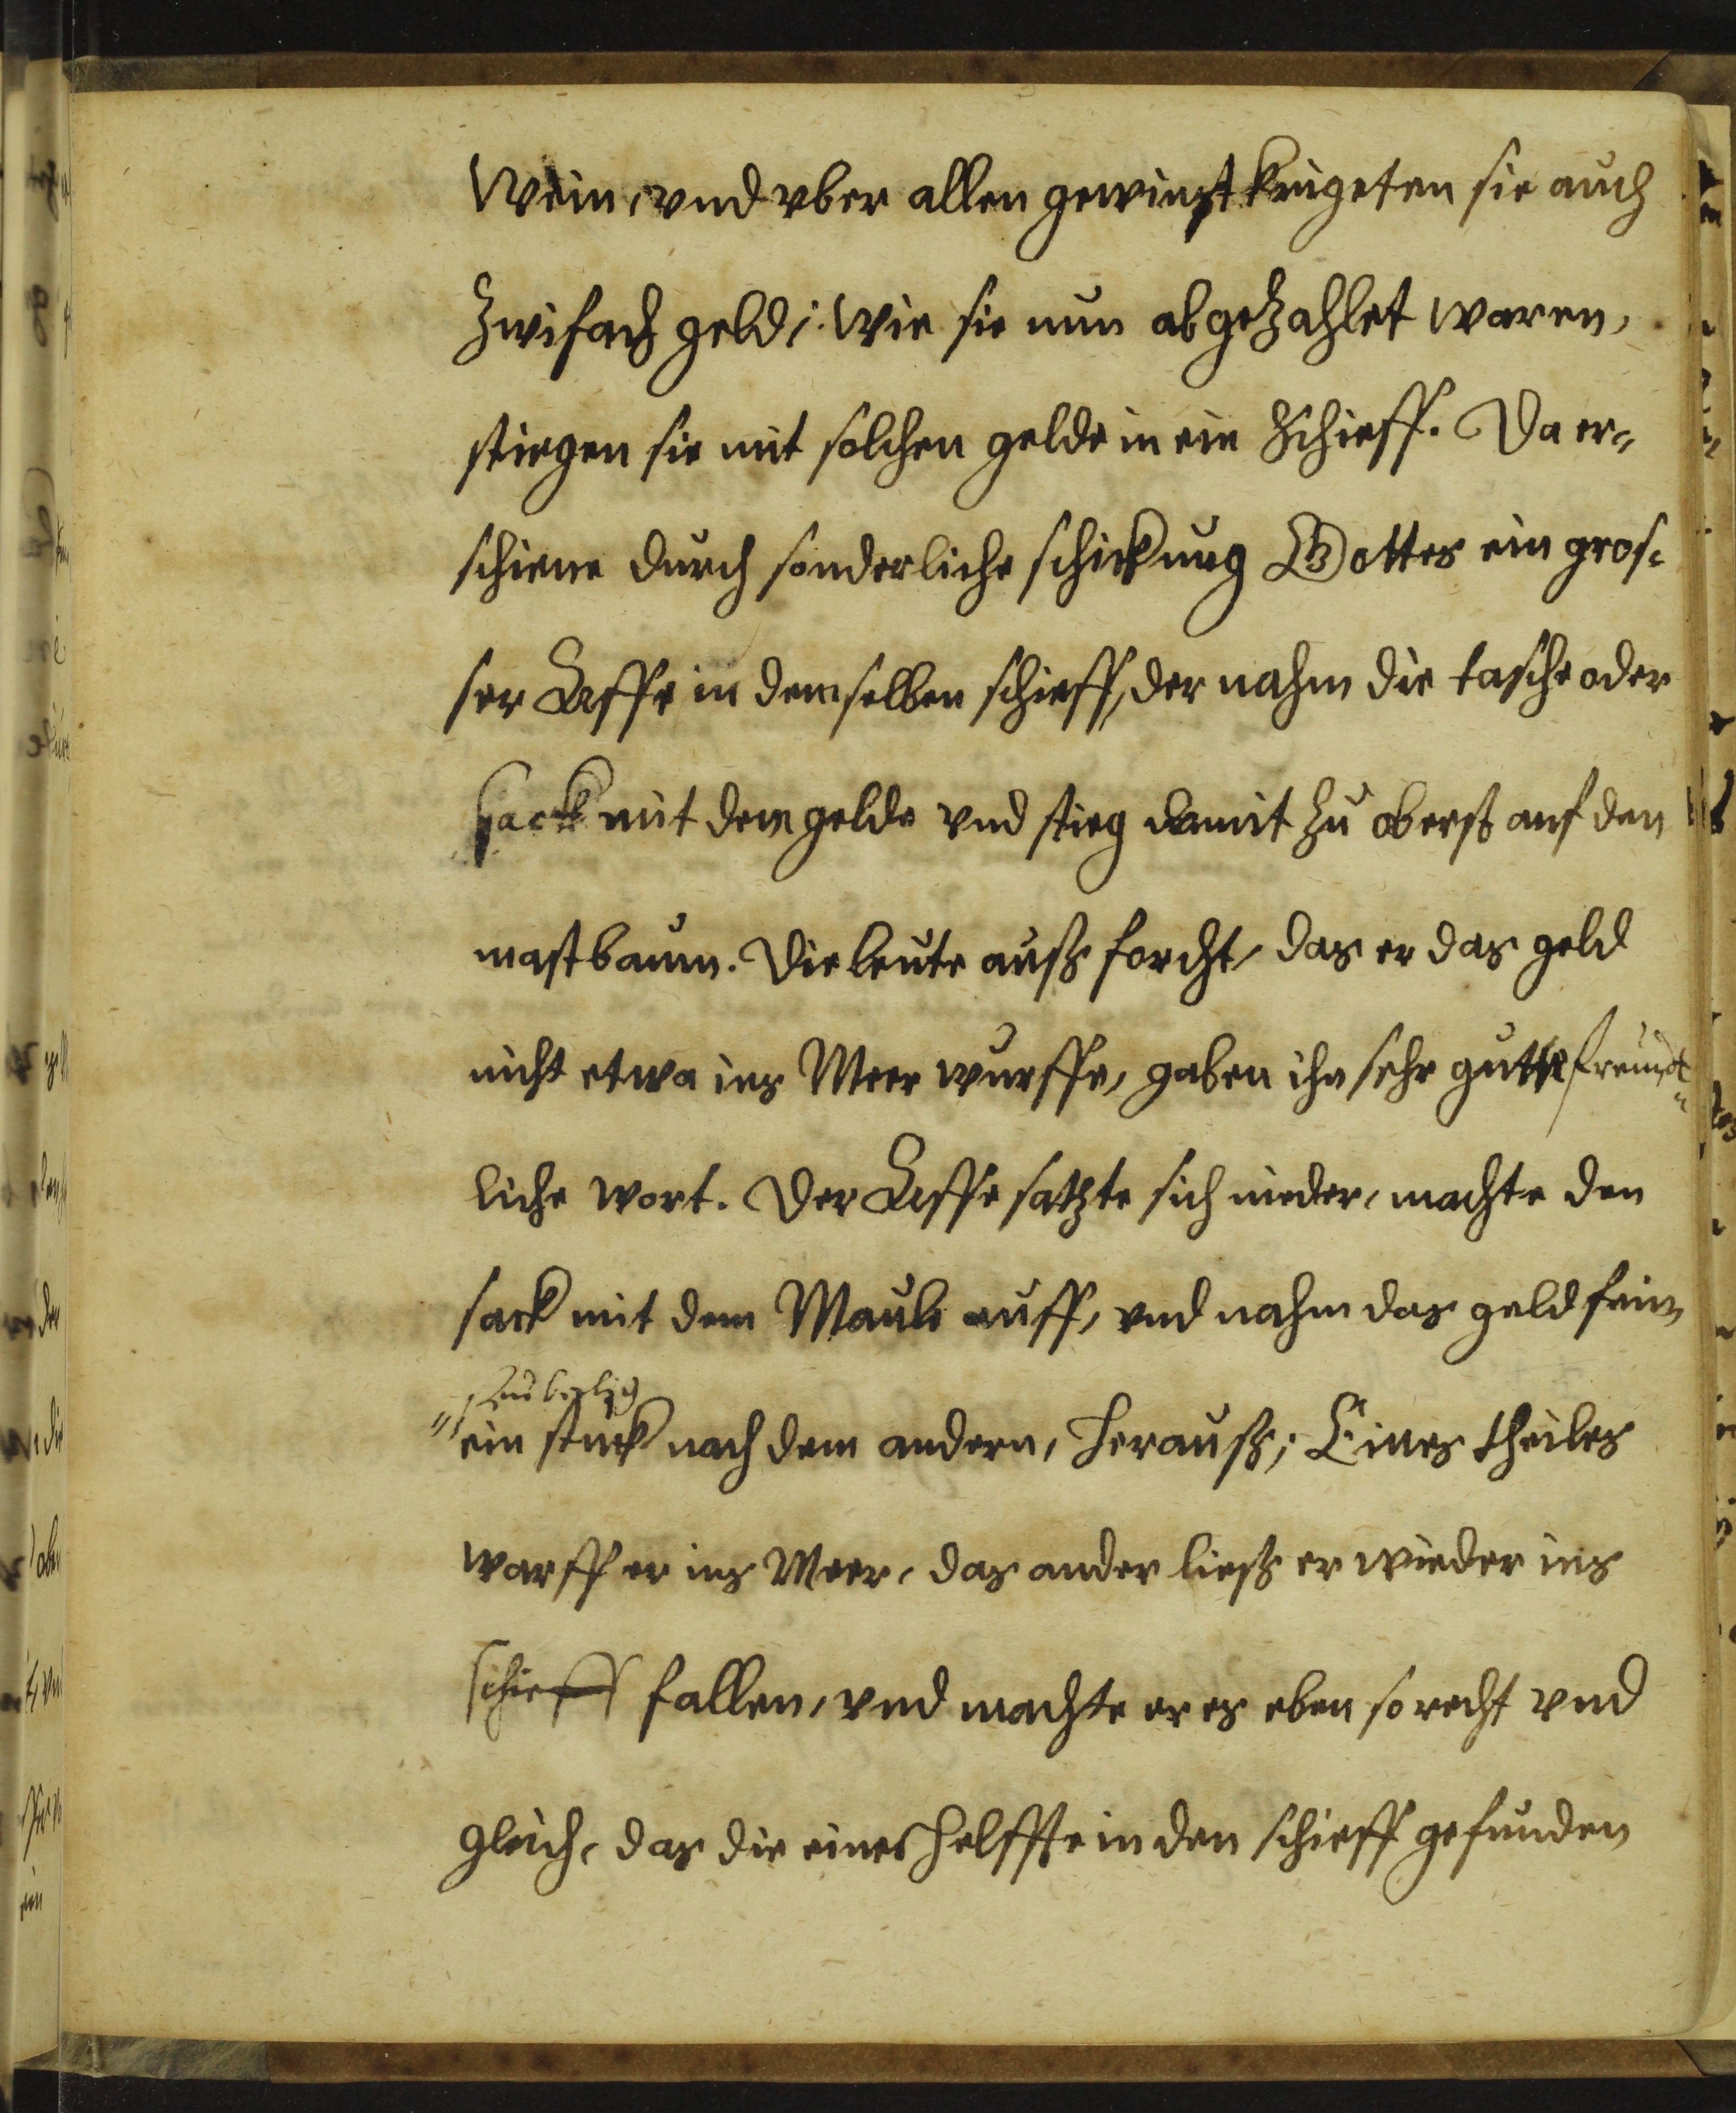 Wein, vnd vber allen gewinst kriegeten sie auch
zwifach geld; Wie sie nun abgezahlet waren,
stiegen sie mit solchen gelde in ein Schieff. Da er-
schiene durch sonderliche schickung Gottes ein gros-
ser Affe in demselben schieff, der nahm die tasche oder
sack mit dem gelde vnd stieg damit zu oberst auf den
mastbaum. Die leute auß forcht, das er das geld
nicht etwa ins Meer wurffe, gaben ihn sehr gutte freundt-
liche wort. Der Affe satzte sich nieder, machte den
sack mit dem Maule auff, vnd nahm das geld fein
seuberlich
ein stuck nach dem andern, herauß; Eines theiles
warff er ins Meer, das ander ließ er wieder ins
schieff fallen, vnd machte er es eben so recht vnd
gleich, das die eines helffte in den schieff gefunden